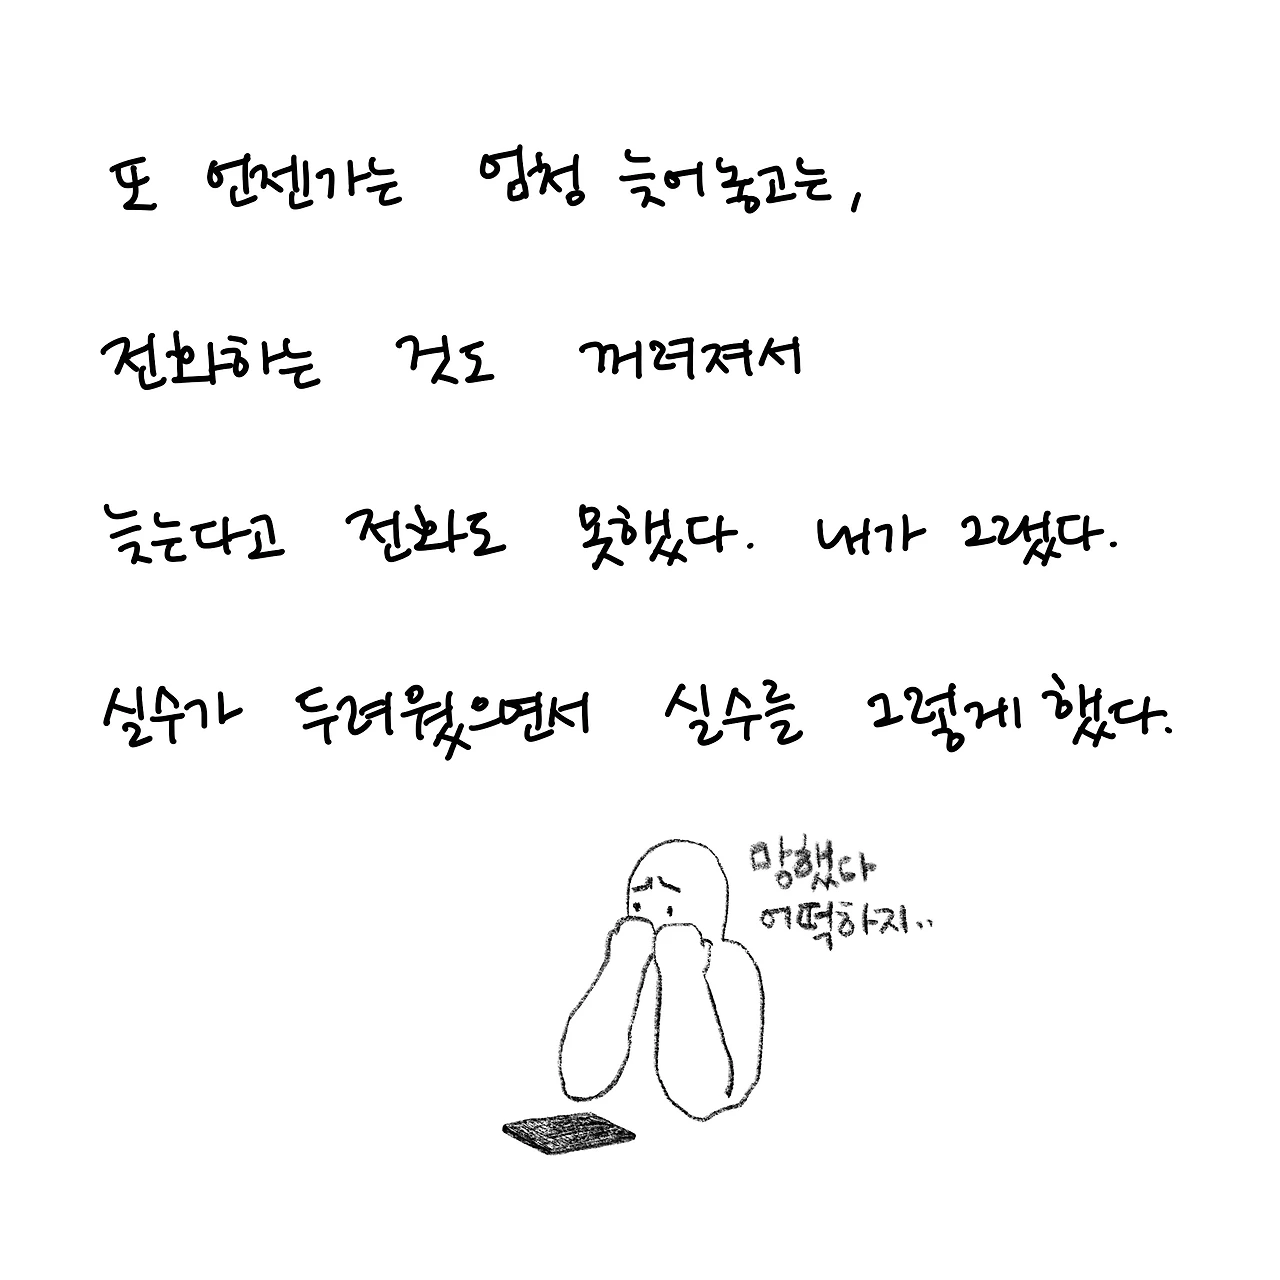 또 언젠가는 엄청 늦어놓고는,
전화하는 것도 꺼려져서
늦는다고 전화도 못했다. 내가 그랬다.
실수가 두려웠으면서 실수를 그렇게 했다.
망했다
어떡하지..